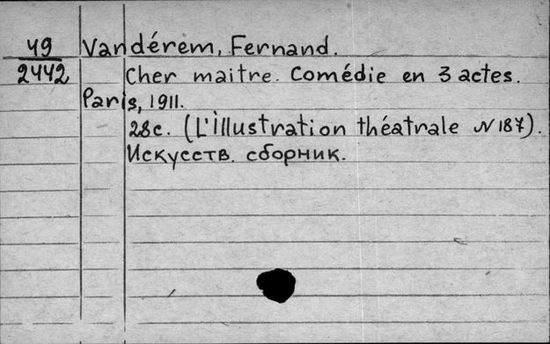 49 Vandérem, Fernand.
2442 Cher maitre. Comédie en 3 actes.
Paris, 1911.
28c. (L'illustration théatrale N 187).
Искусств. сборник.